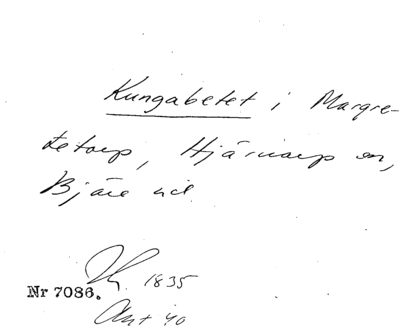 Kungabetet i Margre-
tetorp, Hjärnarp sn,
Bjäre hd.
1835
Nr 7086.
Akt 40